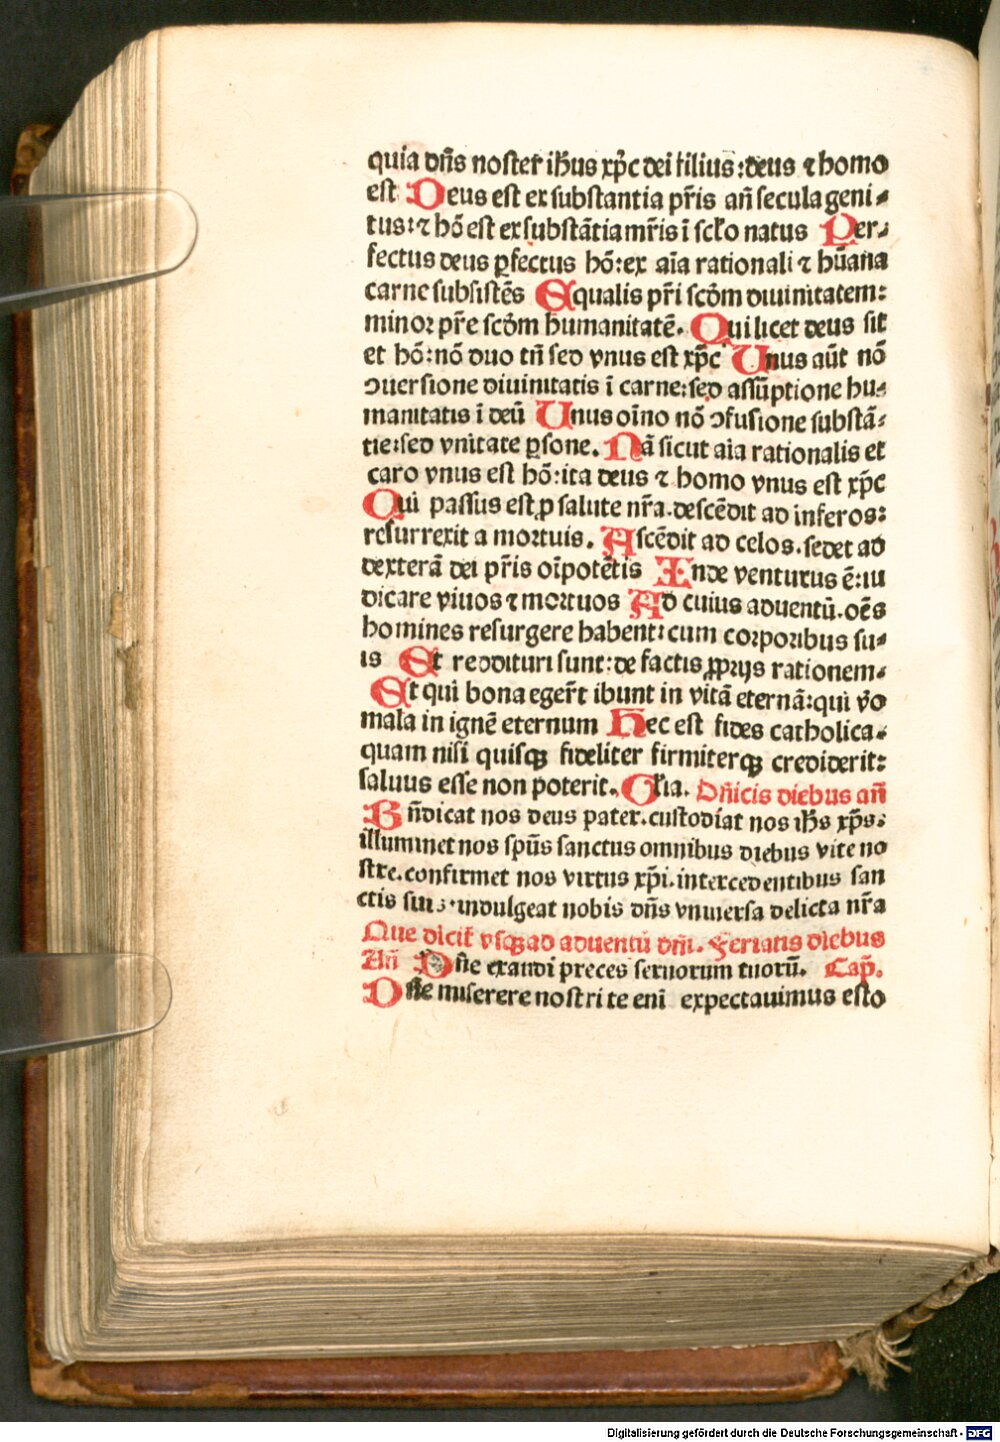 quia dñs noster ihūs xp̄c dei filius: deus ⁊ homo
est Deus est ex substantia pr̄is an̄ secula geni⸗
tus: ⁊ hō est ex substātia mr̄is ī scl̄o natus Per⸗
fectus deus ꝑfectus hō: ex aīa rationali ⁊ hūana
carne subsistēs Equalis pr̄i scd̄m diuinitatem:
minor pr̄e scd̄m humanitatē. Qui licet deus sit
et hō: nō duo tn̄ sed vnus est xp̄c Unus aūt nō
ꝯuersione diuinitatis ī carne: sed assūptione hu⸗
manitatis ī deū Unus oīno nō ꝯfusione substā⸗
tie: sed vnitate ꝑsone. Nā sicut aīa rationalis et
caro vnus est hō: ita deus ⁊ homo vnus est xp̄c
Qui passus est ꝓ salute nr̄a. descēdit ad inferos:
resurrexit a mortuis. Ascēdit ad celos. sedet ad
dexterā dei pr̄is oīpotētis Inde venturus ē: iu
dicare viuos ⁊ mortuos Ad cuius aduentū. oēs
homines resurgere habent: cum corporibus su⸗
is Et reddituri sunt: de factis ꝓprijs rationem⸗
Et qui bona egerr̄t ibunt in vitā eternā: qui v̄o
mala in ignē eternum Hec est fides catholica⸗
quam nisi quisqꝫ fideliter firmiterqꝫ crediderit:
saluus esse non poterit. Gl̄ia. Dn̄icis diebus an̄
Bn̄dicat nos deus pater. custodiat nos ihs̄ xp̄s:
illuminet nos spūs sanctus omnibus diebus vite no
stre. confirmet nos virtus xp̄i. intercedentibus san
ctis suis. indulgeat nobis dn̄s vniuersa delicta nr̄a
Que dicit̄ vsqꝫ ad aduentū dm̄. Feriatis diebus
An̄ Dn̄e exaudi preces seruorum tuorū. Cap̄.
Dn̄e miserere nostri te enī expectauimus esto
Digitalisierung gefördert durch die Deutsche Forschungsgemeinschaft - DFG